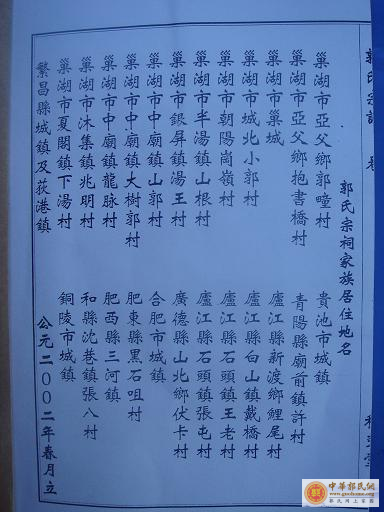 郭氏宗譜 卷
郭氏宗祠家族居住地名
巢湖市亞父鄉郭疃村
巢湖市亞父鄉抱書橋村
巢湖市巢城
巢湖市城北小郭村
巢湖市朝陽崗嶺村
巢湖市半湯鎮山根村
巢湖市銀屏鎮湯王村
巢湖市中廟鎮山郭村
巢湖市中廟鎮大樹郭村
巢湖市中廟鎮龍脉村
巢湖市沐集鎮兆明村
巢湖市夏閣鎮下湯村
繁昌縣城鎮及荻港鎮
貴池市城鎮
青陽縣廟前鎮許村
廬江縣新渡鄉鯉尾村
廬江縣白山鎮戴橋村
廬江縣石頭鎮王老村
廬江縣石頭鎮張屯村
廣德縣山北鄉伏卡村
合肥市城鎮
肥東縣黑石咀村
肥西縣三河鎮
和縣沈巷鎮張八村
銅陵市城鎮
公元二00二年春月立
中華郭氏網